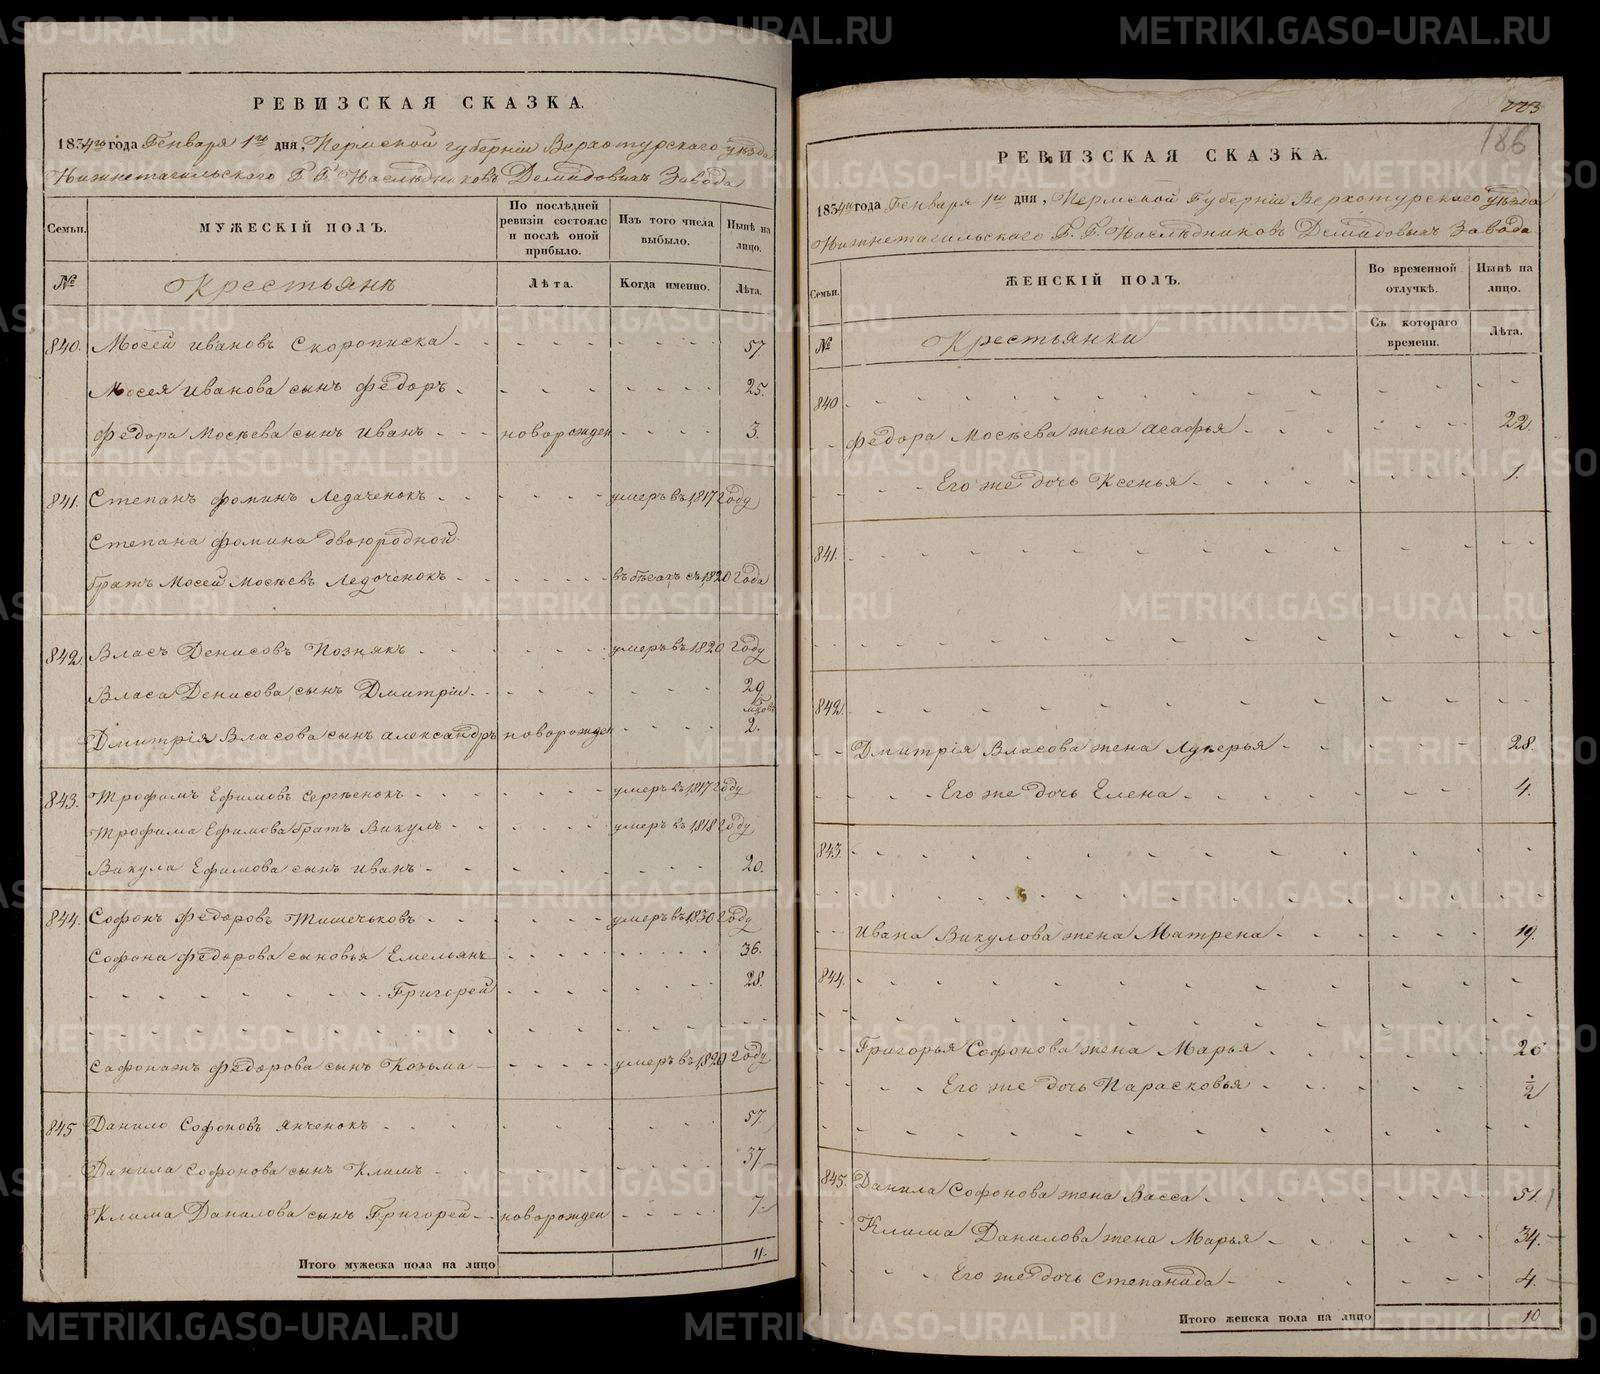 РЕВИЗСКАЯ СКАЗКА.
1834го года Генваря 1го дня, Пермской губерніи Верхотурскаго уѣзда
Нижнетагильскаго Г. Г. Наслѣдниковъ Демидовыхъ Завода
Семьи.
МУЖЕСКІЙ ПОЛЪ.
По послѣдней ревизіи состояло и послѣ оной прибыло.
Изъ того числа выбыло.
Нынѣ на лицо.
№
Крестьянъ
Лѣта.
Когда именно.
Лѣта.
840. Мосей Ивановъ Скорописка 57.
Мосея Иванова сынъ Федоръ 25.
Федора Мосѣева сынъ Иванъ новорожден 3.
841. Степанъ Фоминъ Ледаченокъ умеръ въ 1817 году
Степана Фомина двоюродной
братъ Мосей Мосѣевъ Ледоченокъ въ бѣгахъ съ 1820 года
842. Власъ Денисовъ Познякъ умеръ въ 1820 году
Власа Денисова сынъ Дмитрій 29
Дмитрія Власова сынъ Александръ новорожден 2.
843. Трофимъ Ефимовъ Сергѣенокъ умеръ въ 1817 году
Трофима Ефимова братъ Викулъ умеръ въ 1818 году
Викула Ефимова сынъ Иванъ 20.
844. Софонъ Федоровъ Тишечьковъ умеръ въ 1830 году
Софона Федорова сыновья Емельянъ 36.
Григорей 28.
Федорова сынъ Козьма умеръ въ 1820 году
845 Данило Софоновъ Янченокъ 57
Данила Софонова сынъ Климъ 37
Клима Данилова сынъ Григорей новорожден 7.
Итого мужеска пола на лицо 11.
223
186
РЕВИЗСКАЯ СКАЗКА.
1834го года Генваря 1го дня, Пермской Губерніи Верхотурскаго уѣзда
Нижнетагильскаго Г. Г. Наслѣдниковъ Демидовыхъ Завода
Семьи.
ЖЕНСКІЙ ПОЛЪ.
Во временной отлучкѣ.
Нынѣ на лицо.
№
Крестьянки
Съ котораго времени.
Лѣта.
840
Федора Мосѣева жена Агафья 22.
Его же дочь Ксенья 1.
841.
842.
Дмитрія Власова жена Лукерья 28.
Его же дочь Елена 4.
843.
Ивана Викулова жена Матрена 19.
844.
Григорья Софонова жена Марья 26
Его же дочь Парасковья ½
845. Данила Софонова жена Васса 51.
Клима Данилова жена Марья 34.
Его же дочь Степанида 4.
Итого женска пола на лицо 10.
METRIKI.GASO-URAL.RU